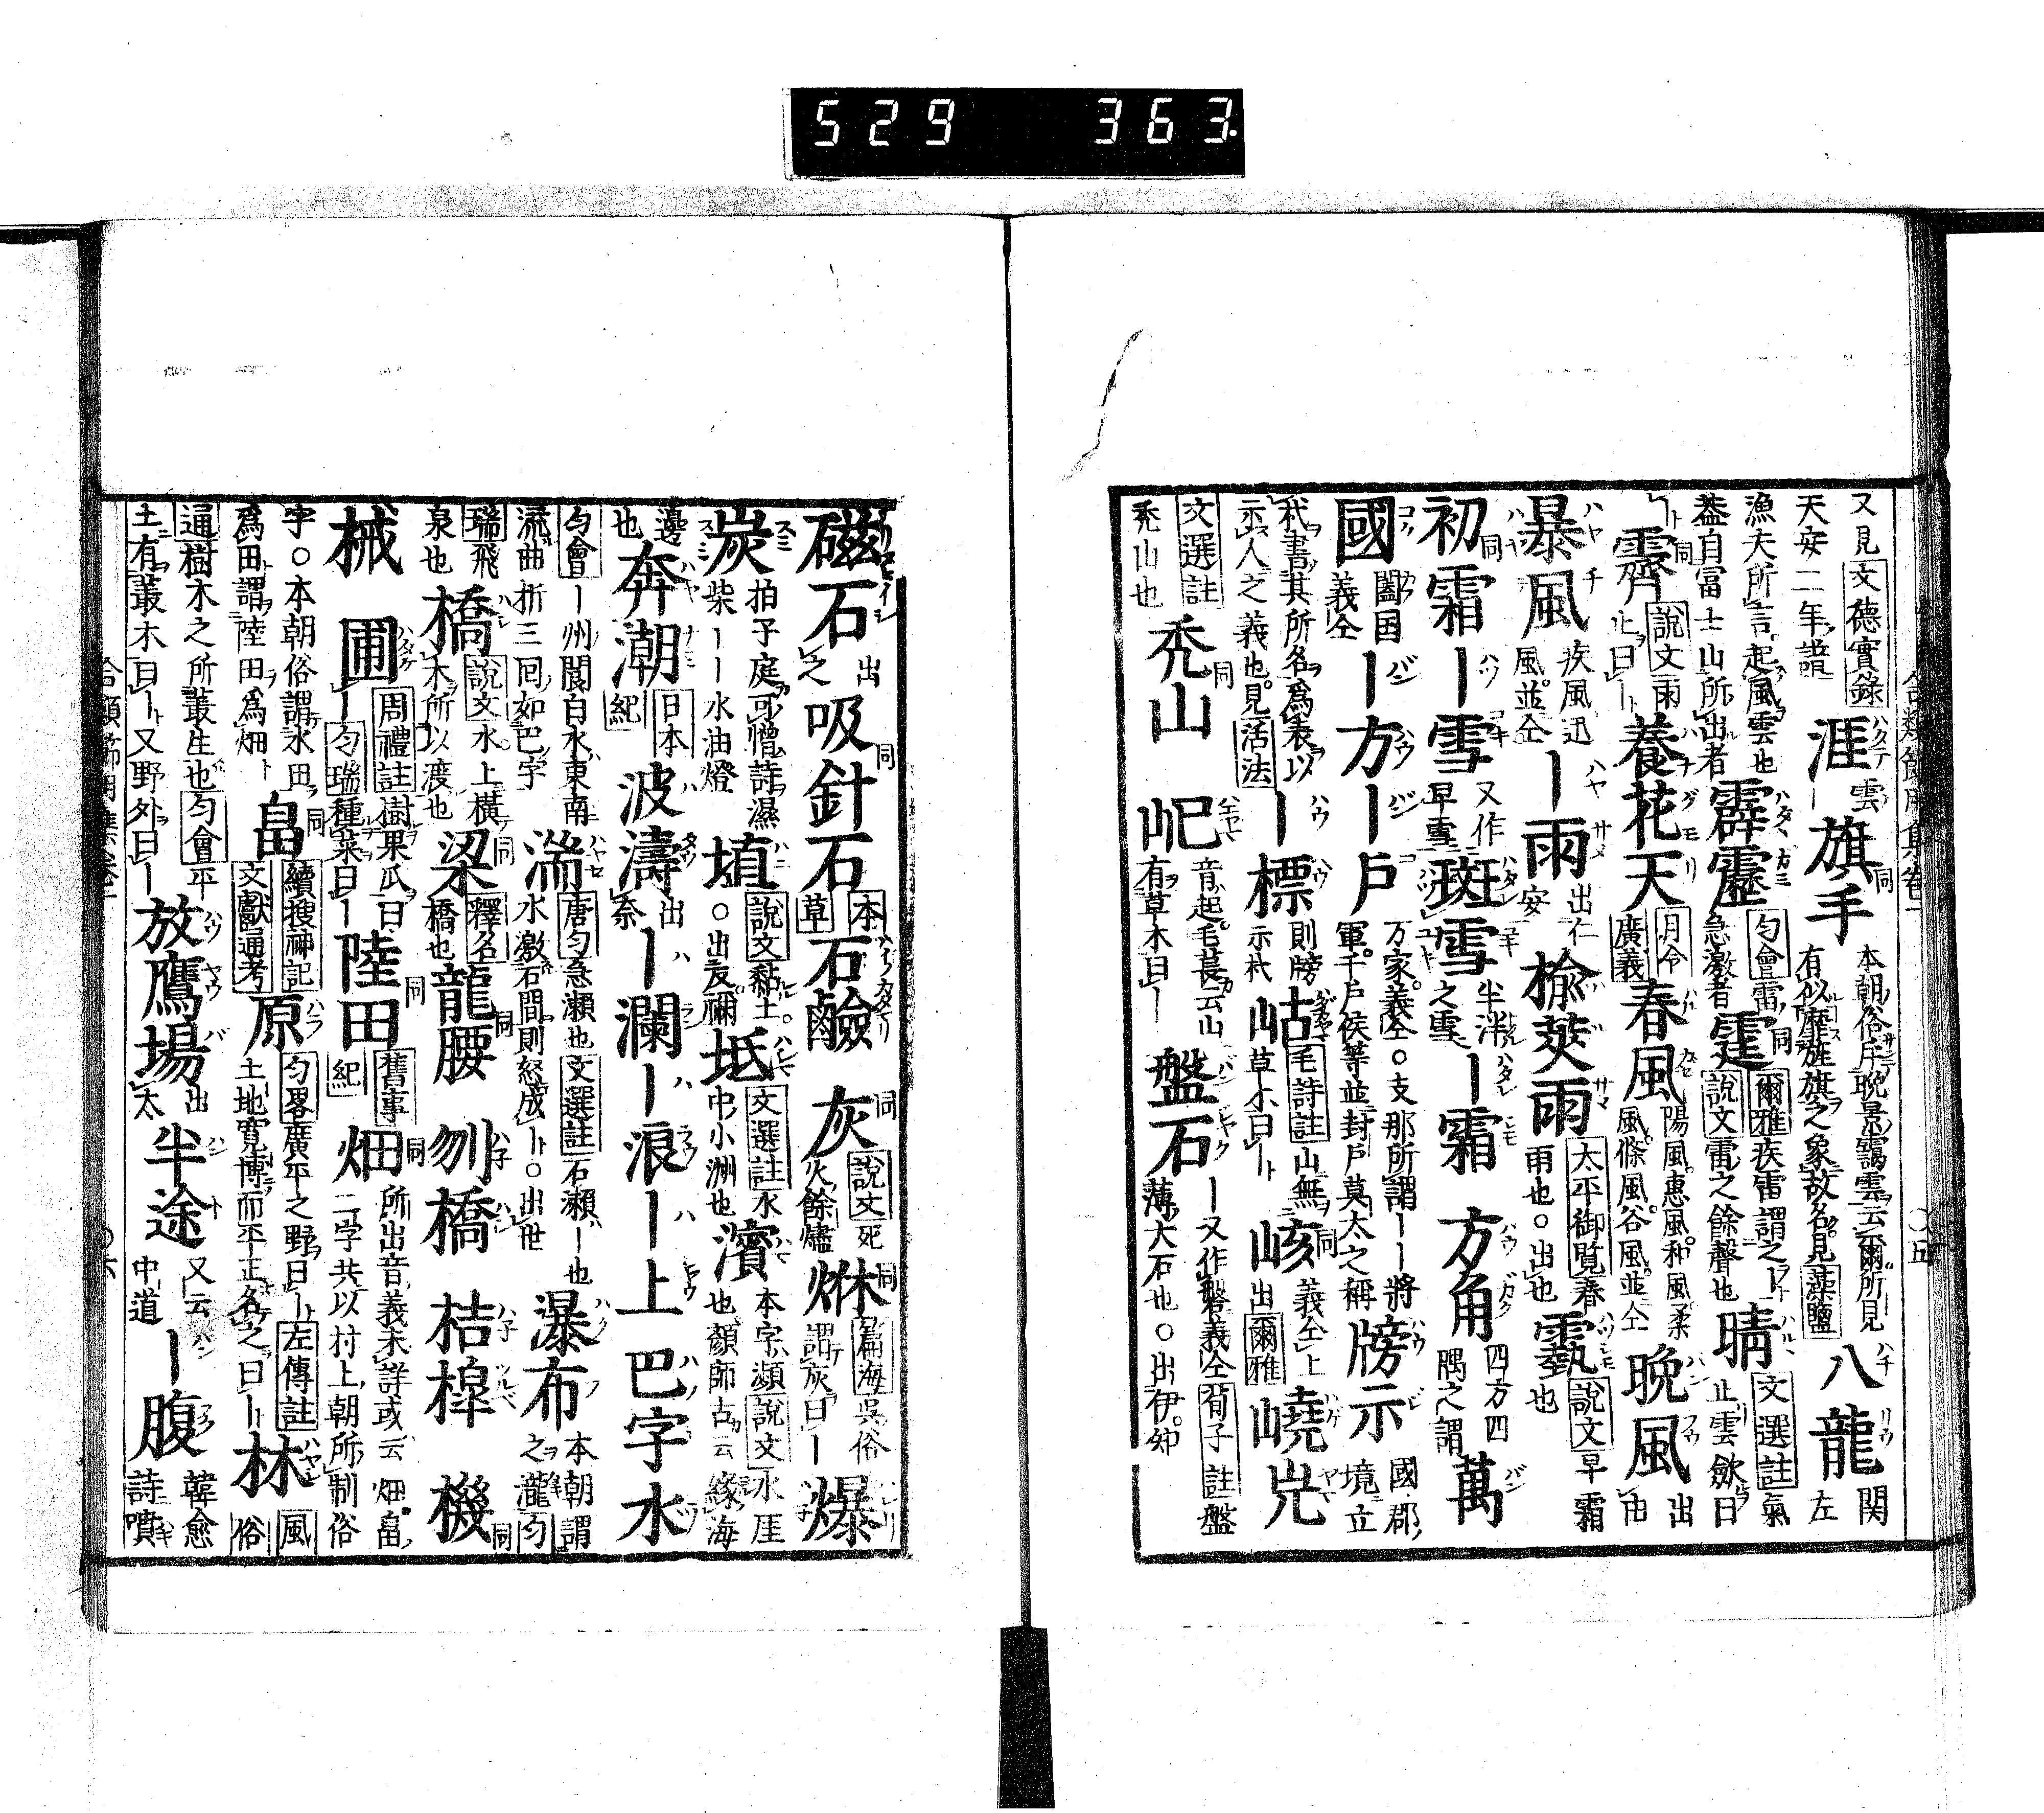 529 363.
又見文德實錄
天安二年、諩
涯雲ー旗手
本朝ノ俗斥テ晩景靄雲ヲ云爾。所
有似旌旗之象故名。見藻鹽
八龍
関
左
漁夫所言。起風雲也
葢自冨士山所出者
霹靂
匀會雷ノ
急激者
霆
爾雅疾雷謂之ー
說文雷之餘聲也
晴
文選註氣
止雲歛曰
ート霽
說文雨
止曰ート
養花天
月令
廣義
春風
陽風。惠風。和風柔
風。條風。谷風。並仝
晩風
出
由
暴風
疾風迅
風並仝
ー雨
出仁
安
楡莢雨
太平御覧春
雨也○出也
霜
說文早霜
也
初霜ー雪
又作
早雪
斑雪
半消
之雪
ー霜方角
四方四
隅之謂
萬
國
闔国
義仝
ー方ー戶
万家。義仝○支那所謂ーー將
軍。千戶侯等並封戶莫太之稱
牓示
國郡ノ
境立
代書其所名爲表以
示人之義也。見活法
ー標
則牓
示杙
岵
毛詩註山無
草木曰ート
峐
義仝上
出爾雅
嶢屼
文選註
禿山也
禿山屺
音起。毛萇云山
有草木曰ー
盤石
ー又作磐義仝荀子註盤
薄大石也○出伊。知
合類節用集卷一
○五
磁石
出
之
吸針石
本
草
石鹼灰
說文死
火餘燼
烌
篇海吳俗
謂灰曰ー
爆
炭
拍子庭可憎詩濕
柴ーー水油燈
埴
說文黏土。
○出友。禰
坻
文選註水
中小洲也
濱
本字瀕說文水厓
也。顏師古云緣海
邊
也
奔潮
日本
紀
波濤
出
奈
ー瀾ー浪ー上巴字水
匀會ー州閬白水東南
流曲折三囘如巴字
湍
唐匀急瀨也文選註石瀨ー也
水激石間則怒成ート○出世
瀑布
本朝謂
之瀧匀
瑞飛
泉也
橋
說文水上橫
木所以渡也
梁
釋名
橋也
龍腰刎橋桔槹機
械圃
周禮註樹果瓜曰
ー匀瑞種菜曰ー
陸田
舊事
紀
畑
所出音義未詳或云畑。畠ノ
二字共以村上朝所制俗
字。○本朝俗謂水田
爲田謂陸田爲畑
畠
續搜神記
文獻通考
原
匀畧廣平之野曰ート左傳註
土地寛博而平正名之曰ート
林
風
俗
通樹木之所叢生也匀會平
土有叢木曰ート又野外曰ー
放鷹場
出
太
半途
又云
中道
ー腹
韓愈
詩噴
合類節用集卷一
○六